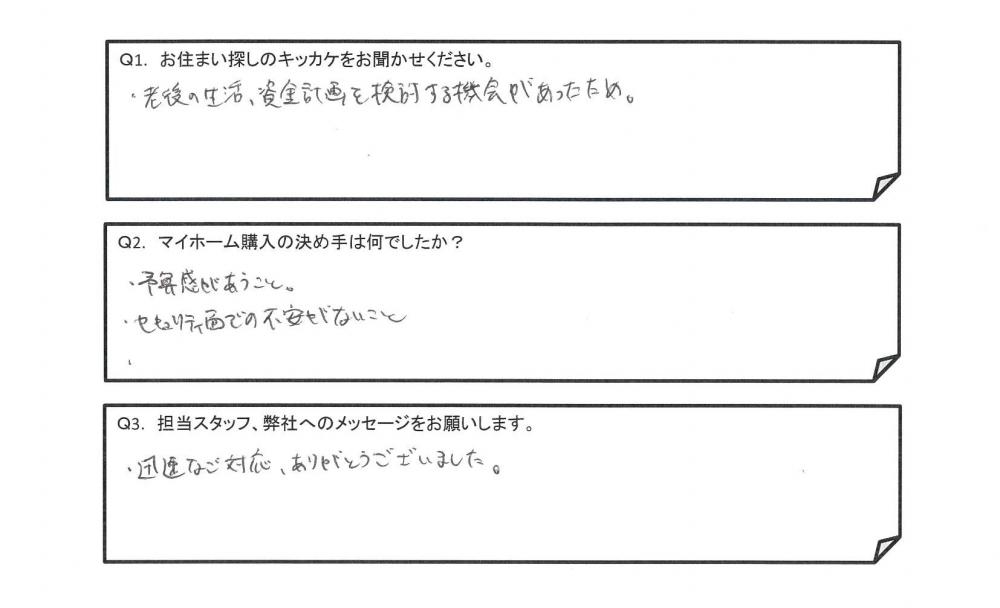 Q1. お住まい探しのキッカケをお聞かせください。
・老後の生活、資金計画を検討する機会があったため。
Q2. マイホーム購入の決め手は何でしたか？
・予算感があうこと。
・セキュリティ面での不安がないこと
・
Q3. 担当スタッフ、弊社へのメッセージをお願いします。
・迅速なご対応、ありがとうございました。